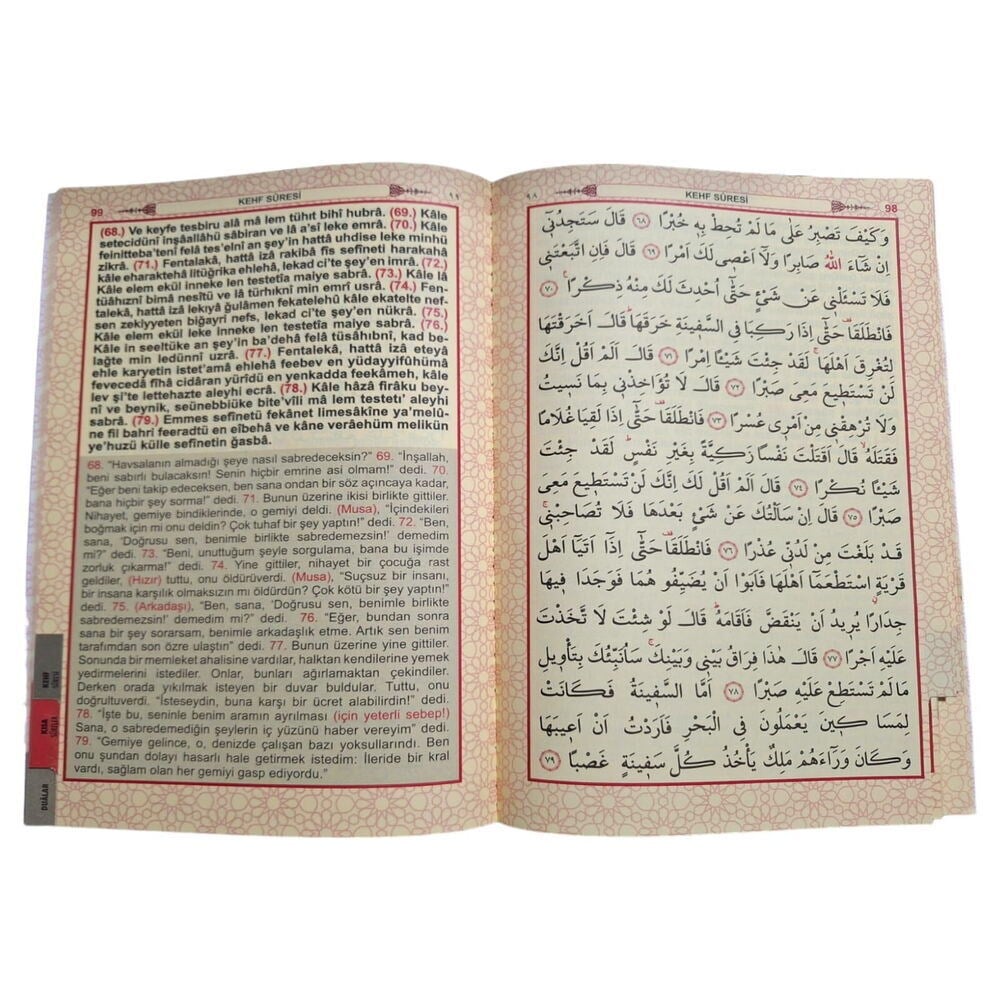 99
KEHF SÛRESİ
٩٩
(68.) Ve keyfe tesbiru alâ mâ lem tühıt bihî hubrâ. (69.) Kâle
setecidünî inşâallâhü sâbiran ve lâ a'sî leke emrâ. (70.) Kâle
feinitteba'tenî felâ tes'elnî an şey'in hattâ uhdise leke minhü
zikrâ. (71.) Fentalakâ, hattâ izâ rakibâ fis sefîneti harakahâ
kâle eharaktehâ litüğrika ehlehâ, lekad ci'te şey'en imrâ. (72.)
Kâle elem ekül inneke len testetîa maiye sabrâ. (73.) Kâle lâ
tüâhıznî bimâ nesîtü ve lâ türhıknî min emrî usrâ. (74.) Fen-
talekâ, hattâ izâ lekıyâ ğulâmen fekatelehû kâle ekatelte nef-
sen zekiyyeten biğayri nefs, lekad ci'te şey'en nükrâ. (75.)
Kâle elem ekül leke inneke len testetîa maiye sabrâ. (76.)
Kâle in seeltüke an şey'in ba'dehâ felâ tüsâhıbnî, kad be-
lağte min ledünnî uzrâ. (77.) Fentalekâ, hattâ izâ eteyâ
ehle karyetin istet'amâ ehlehâ feebev en yüdayyifûhümâ
fevecedâ fîhâ cidâran yürîdü en yenkadda feekâmeh, kâle
lev şi'te lettehazte aleyhi ecrâ. (78.) Kâle hâzâ firâku bey-
nî ve beynik, seünebbiüke bite'vîli mâ lem testetı' aleyhi
sabrâ. (79.) Emmes sefînetü fekânet limesâkîne ya'melû-
ne fil bahri feeradtü en eîbehâ ve kâne verâehüm melikün
ye'huzü külle sefînetin ğasbâ.
68. "Havsalanın almadığı şeye nasıl sabredeceksin?" 69. "İnşallah,
beni sabırlı bulacaksın! Senin hiçbir emrine asi olmam!" dedi. 70.
"Eğer beni takip edeceksen, ben sana ondan bir söz açıncaya kadar,
bana hiçbir şey sorma!" dedi. 71. Bunun üzerine ikisi birlikte gittiler.
Nihayet, gemiye bindiklerinde, o gemiyi deldi. (Musa), "İçindekileri
boğmak için mi onu deldin? Çok tuhaf bir şey yaptın!" dedi. 72. "Ben,
sana, 'Doğrusu sen, benimle birlikte sabredemezsin!' demedim
mi?" dedi. 73. "Beni, unuttuğum şeyle sorgulama, bana bu işimde
zorluk çıkarma!" dedi. 74. Yine gittiler, nihayet bir çocuğa rast
geldiler, (Hızır) tuttu, onu öldürüverdi. (Musa), "Suçsuz bir insanı,
bir insana karşılık olmaksızın mı öldürdün? Çok kötü bir şey yaptın!"
dedi. 75. (Arkadaşı), "Ben, sana, 'Doğrusu sen, benimle birlikte
sabredemezsin!' demedim mi?" dedi. 76. "Eğer, bundan sonra
sana bir şey sorarsam, benimle arkadaşlık etme. Artık sen benim
tarafımdan son özre ulaştın" dedi. 77. Bunun üzerine yine gittiler.
Sonunda bir memleket ahalisine vardılar, halktan kendilerine yemek
yedirmelerini istediler. Onlar, bunları ağırlamaktan çekindiler.
Derken orada yıkılmak isteyen bir duvar buldular. Tuttu, onu
doğrultuverdi. "İsteseydin, buna karşı bir ücret alabilirdin!" dedi.
78. "İşte bu, seninle benim aramın ayrılması (için yeterli sebep!)
Sana, o sabredemediğin şeylerin iç yüzünü haber vereyim" dedi.
79. "Gemiye gelince, o, denizde çalışan bazı yoksullarındı. Ben
onu şundan dolayı hasarlı hale getirmek istedim: İleride bir kral
vardı, sağlam olan her gemiyi gasp ediyordu."
KEHF
SÛRESİ
KISA
SÛRELER
DUÂLAR
٩٨
KEHF SÛRESİ
98
وَكَيْفَ تَصْبِرُ عَلٰى مَا لَمْ تُحِطْ بِه۪ خُبْرًا ﴿٦٨﴾ قَالَ سَتَجِدُن۪ٓي
اِنْ شَٓاءَ اللّٰهُ صَابِرًا وَلَٓا اَعْص۪ي لَكَ اَمْرًا ﴿٦٩﴾ قَالَ فَاِنِ اتَّبَعْتَن۪ي
فَلَا تَسْـَٔلْن۪ي عَنْ شَيْءٍ حَتّٰٓى اُحْدِثَ لَكَ مِنْهُ ذِكْرًا۟ ﴿٧٠﴾
فَانْطَلَقَا۠ حَتّٰٓى اِذَا رَكِبَا فِي السَّف۪ينَةِ خَرَقَهَاۜ قَالَ اَخَرَقْتَهَا
لِتُغْرِقَ اَهْلَهَاۚ لَقَدْ جِئْتَ شَيْـًٔا اِمْرًا ﴿٧١﴾ قَالَ اَلَمْ اَقُلْ اِنَّكَ
لَنْ تَسْتَط۪يعَ مَعِيَ صَبْرًا ﴿٧٢﴾ قَالَ لَا تُؤَاخِذْن۪ي بِمَا نَس۪يتُ
وَلَا تُرْهِقْن۪ي مِنْ اَمْر۪ي عُسْرًا ﴿٧٣﴾ فَانْطَلَقَا۠ حَتّٰٓى اِذَا لَقِيَا غُلَامًا
فَقَتَلَهُۙ قَالَ اَقَتَلْتَ نَفْسًا زَكِيَّةً بِغَيْرِ نَفْسٍۜ لَقَدْ جِئْتَ
شَيْـًٔا نُكْرًا ﴿٧٤﴾ قَالَ اَلَمْ اَقُلْ لَكَ اِنَّكَ لَنْ تَسْتَط۪يعَ مَعِيَ
صَبْرًا ﴿٧٥﴾ قَالَ اِنْ سَاَلْتُكَ عَنْ شَيْءٍ بَعْدَهَا فَلَا تُصَاحِبْن۪يۚ
قَدْ بَلَغْتَ مِنْ لَدُنّ۪ي عُذْرًا ﴿٧٦﴾ فَانْطَلَقَا۠ حَتّٰٓى اِذَٓا اَتَيَٓا اَهْلَ
قَرْيَةٍۨ اسْتَطْعَمَٓا اَهْلَهَا فَاَبَوْا اَنْ يُضَيِّفُو هُمَا فَوَجَدَا ف۪يهَا
جِدَارًا يُر۪يدُ اَنْ يَنْقَضَّ فَاَقَامَهُۜ قَالَ لَوْ شِئْتَ لَا تَّخَذْتَ
عَلَيْهِ اَجْرًا ﴿٧٧﴾ قَالَ هٰذَا فِرَاقُ بَيْن۪ي وَبَيْنِكَۚ سَاُنَبِّئُكَ بِتَأْو۪يلِ
مَا لَمْ تَسْتَطِعْ عَلَيْهِ صَبْرًا ﴿٧٨﴾ اَمَّا السَّف۪ينَةُ فَكَانَتْ
لِمَسَا ك۪ينَ يَعْمَلُونَ فِي الْبَحْرِ فَاَرَدْتُ اَنْ اَع۪يبَهَا
وَ كَانَ وَرَٓاءَهُمْ مَلِكٌ يَأْخُذُ كُلَّ سَف۪ينَةٍ غَصْبًا ﴿٧٩﴾